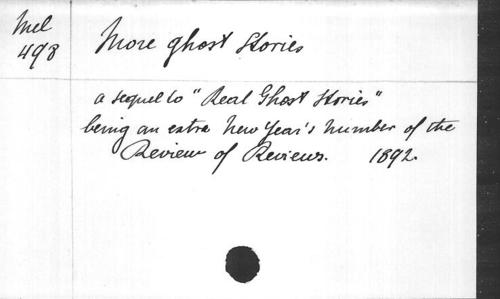 Mel
498
More ghost Stories
a sequel to "Real Ghost Stories"
being an extra New Year's number of the
Review of Reviews. 1892.